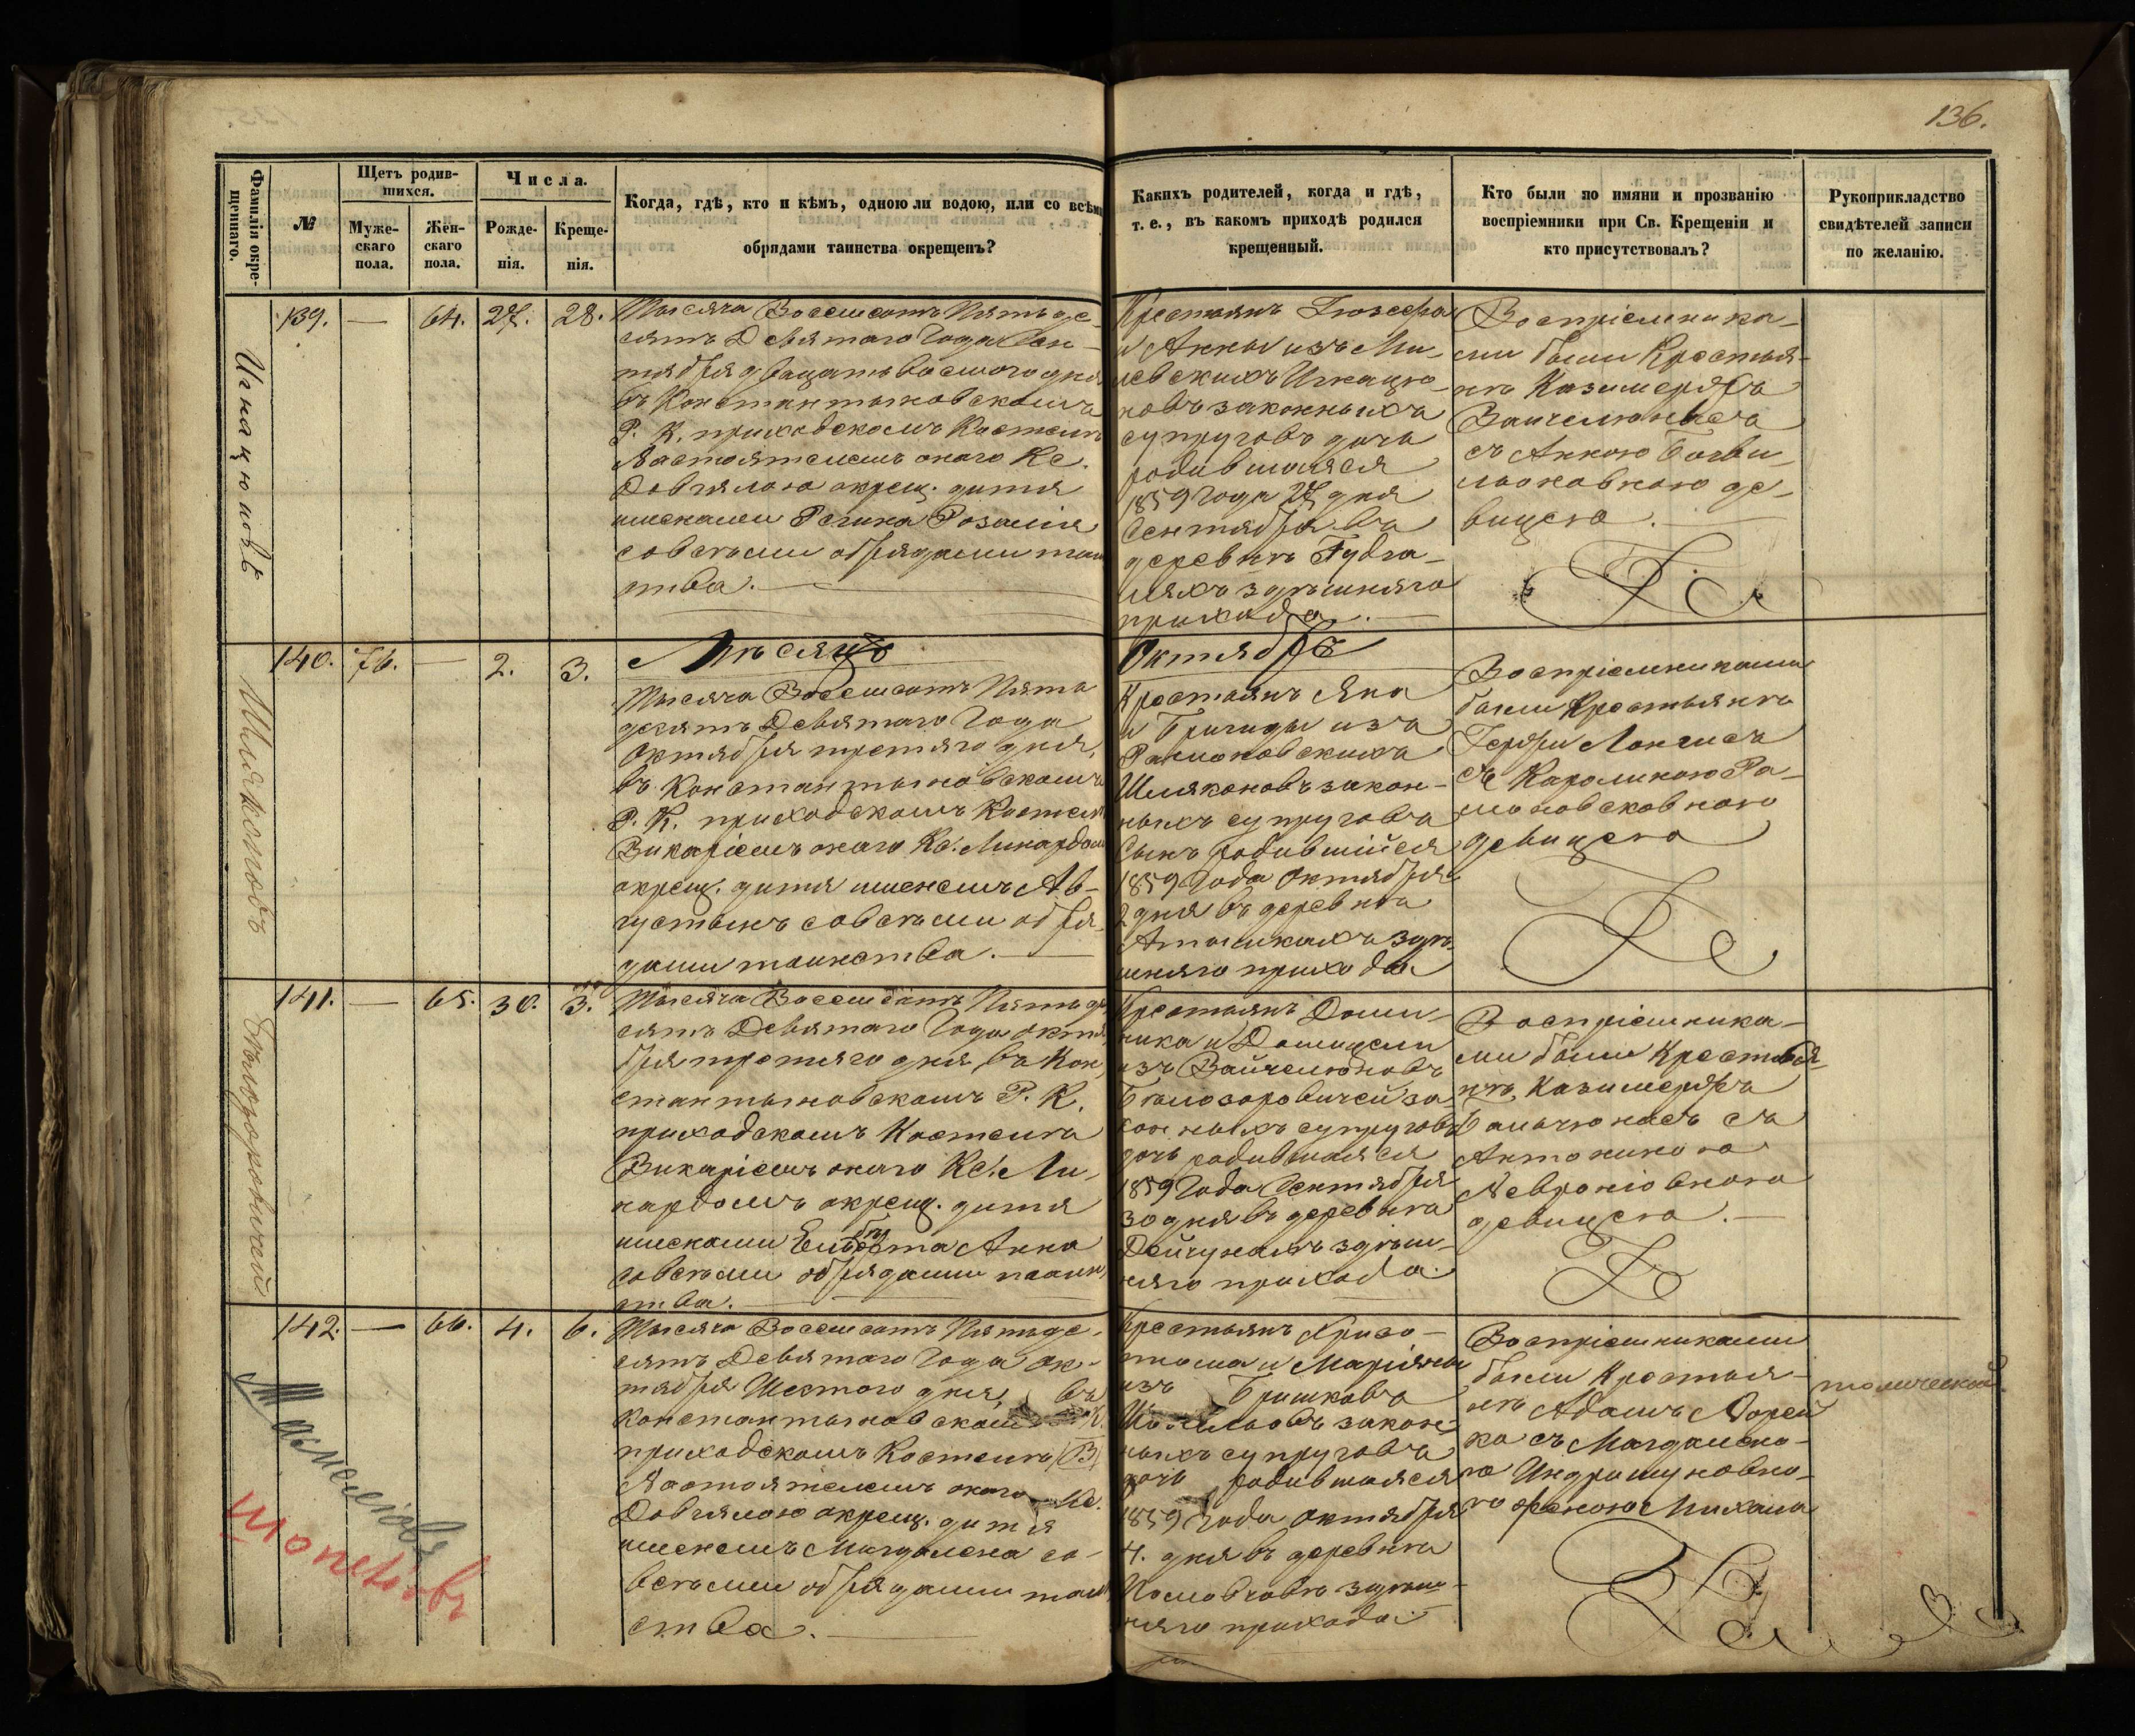 136.
Фамилія окре-
щеннаго.
№
Щетъ родив-
шихся.
Муже-
скаго
пола.
Жен-
скаго
пола.
Числа.
Рожде-
нія.
Креще-
нія.
Когда, гдѣ, кто и кѣмъ, одною ли водою, или со всѣми
обрядами таинства окрещенъ?
Какихъ родителей, когда и гдѣ,
т. е., въ какомъ приходѣ родился
крещенный.
Кто были по имяни и прозванію
воспріемники при Св. Крещеніи и
кто присутствовалъ?
Рукоприкладство
свидѣтелей записи
по желанію.
Игнацюновъ
139. — 64. 27. 28.
Тысяча Восемсотъ Пятьде-
сятъ Девятаго Года Сен-
тября двацать восмого дня
въ Константыновскомъ
Р. К. приходскомъ Костелѣ
Настоятелемъ онаго Кс.
Довгялою окрещ. дитя
именами Регина Розалія
со всѣми обрядами таин
ства.
Крестьянъ Іозефа
и Анны изъ Ми-
левскихъ Игнацю-
новъ законныхъ
супруговъ дочь
родившаяся
1859 года 27 дня
Сентября въ
деревнѣ
здѣшняго
прихода.
Воспріемника-
ми были Крестья-
нѣ Казимержъ
Вайчелюнасъ
съ Анною
де-
вицею.
Шляконовъ
140. 76. — 2. 3.
Мѣсяцъ
Октябрь
Тысяча Восемсотъ Пять
десятъ Девятаго Года
Октября третяго дня,
въ Константыновскомъ
Р. К. приходскомъ Костелѣ
Викаріемъ онаго Кс. Линардом
окрещ. дитя именемъ Ав-
густынъ со всѣми обря-
дами таинства.
Крестьянъ Яна
и Бригиды изъ
Рамоновскихъ
Шляконовъ закон-
ныхъ супруговъ
Сынъ родившійся
1859 Года Октября
2 дня въ деревнѣ
здѣ-
шняго прихода
Воспріемниками
были Крестьянѣ
съ Каролиною Ра-
моновсковною
девицею
Бѣлозоровичей
141. — 65. 30. 3.
Тысяча Восемсотъ Пятьде
сятъ Девятаго Года октя
бря третяго дня, въ Кон
стантыновскомъ Р. К.
приходскомъ Костелѣ
Викаріемъ онаго Кс. Ли-
нардомъ окрещ. дитя
именами Анна
со всѣми обрядами таин
ства.
Крестьянъ Доми-
ника и Домицели
изъ Вайчелюновъ
Бѣлозоровичей за
конныхъ супруговъ
дочь родившаяся
1859 Года Сентября
30 дня въ деревнѣ
Дейгунахъ здѣш-
няго прихода.
Воспріемника-
ми были Крестья-
нѣ Казимержъ
съ
Антониною
девицею.
142. — 66. 4. 6.
Тысяча Восемсотъ Пятьде-
сятъ Девятаго Года Ок-
тября Шестого дня, въ
Константыновском К.
приходскомъ Костелѣ
Настоятелемъ онаго Кс.
Довгялою окрещ. дитя
именемъ Магдалена со
всѣми обрядами таин
ства.
Крестьянъ Хризо-
стома и Маріянны
изъ Бришковъ
закон-
ныхъ супруговъ
дочь родившаяся
1859 Года Октября
4. дня въ деревнѣ
здѣш-
няго прихода.
Воспріемниками
были Крестья-
нѣ Адамъ Норей
ка съ Магдалено-
ю
женою Михала